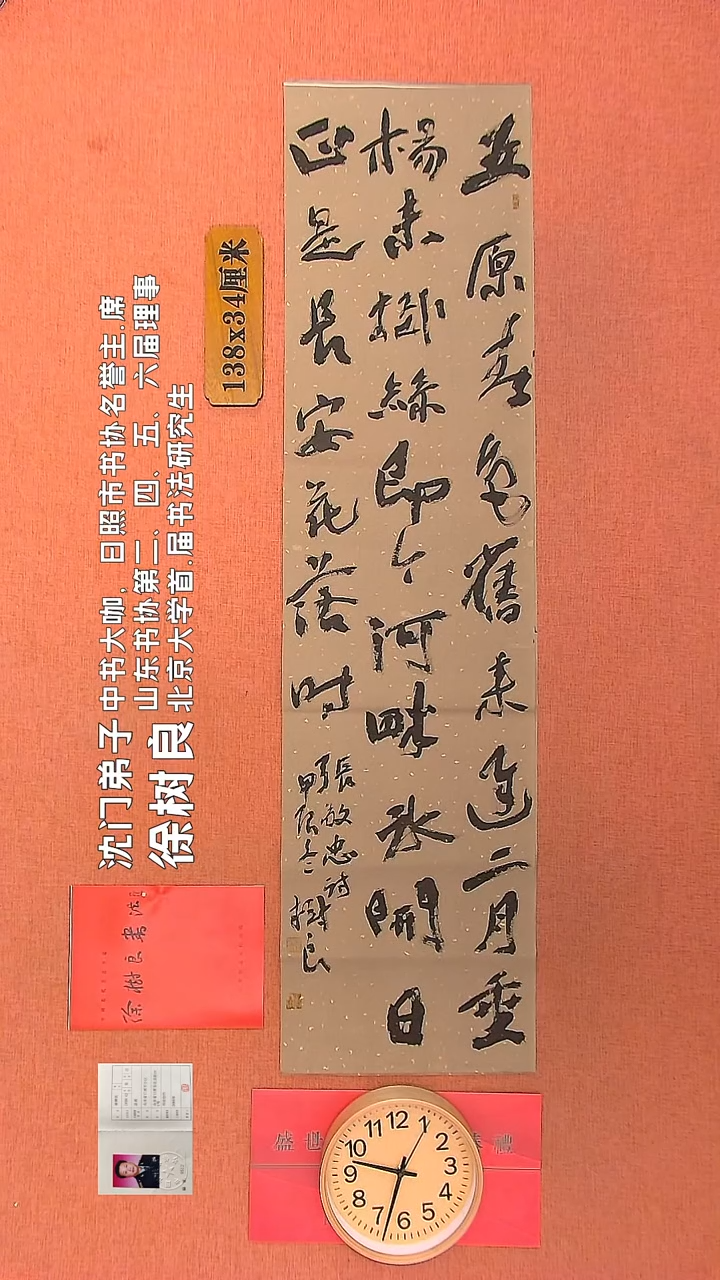 五原春色舊來遲二月垂
楊未掛絲即今河畔冰開日
正是長安花落時
張敬忠詩
甲辰冬
樹良
138x34厘米
沈门弟子
徐树良
中书大咖，日照市书协名誉主.席
山东书协第二、四、五、六届理事
北京大学首.届书法研究生
徐樹良書法
盛世
禮
12
1
2
3
4
5
6
7
8
9
10
11